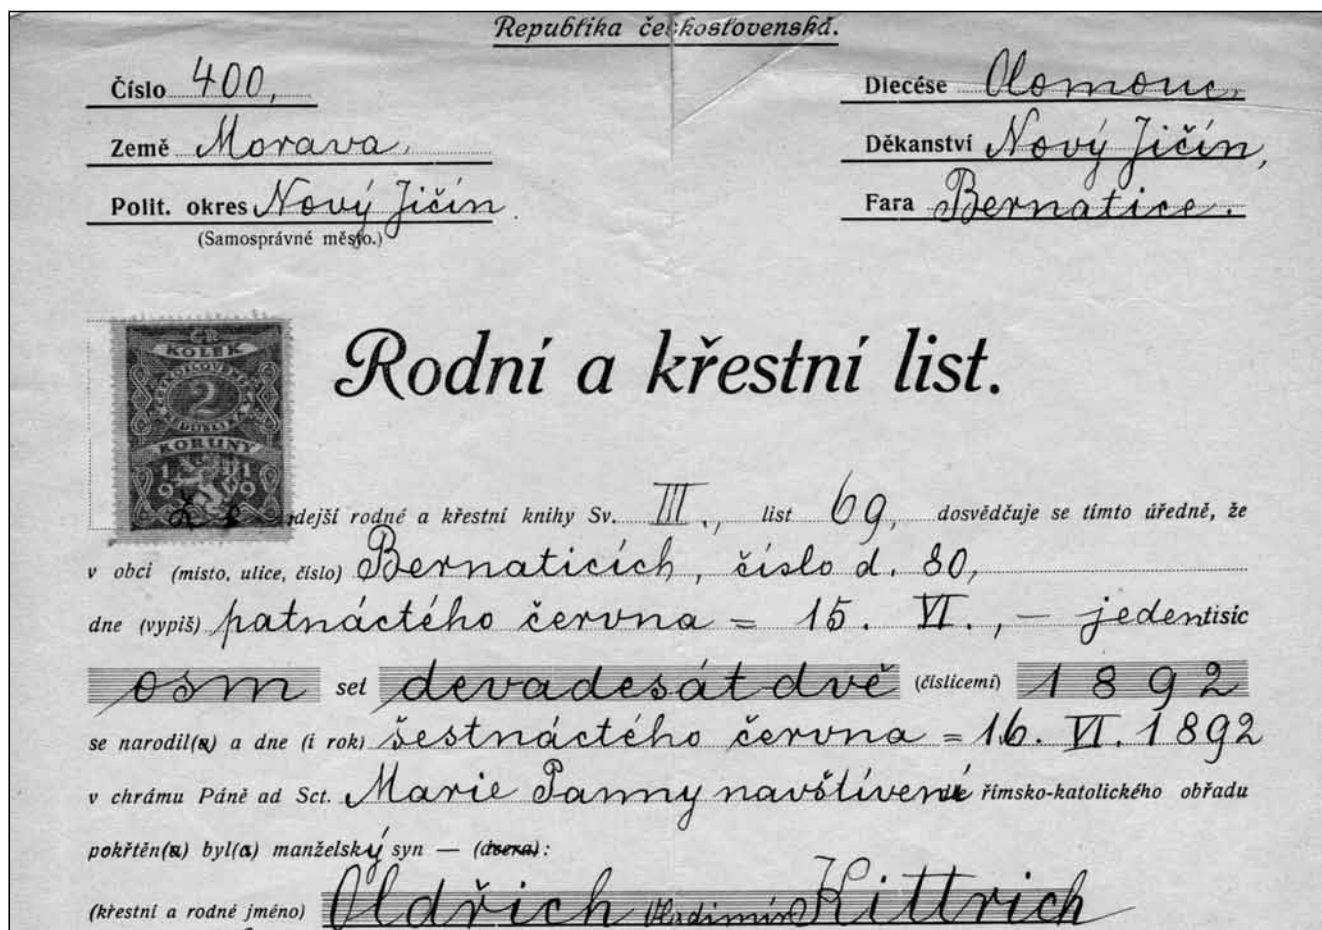 Republika československá.
Číslo 400,
Diecése Olomouc,
Země Morava,
Děkanství Nový Jičín,
Polit. okres Nový Jičín.
Fara Bernatice.
(Samosprávné město.)
ČR
KOLEK
ČESKOSLOVENSKÁ
2
KORUNY
1919
Rodní a křestní list.
Ze zdejší rodné a křestní knihy Sv. III., list 69, dosvědčuje se tímto úředně, že
v obci (místo, ulice, číslo) Bernaticích, číslo d. 80,
dne (vypiš) patnáctého června = 15. VI., – jedentisíc
osm set devadesát dvě (číslicemi) 1892
se narodil(a) a dne (i rok) šestnáctého června = 16. VI. 1892
v chrámu Páně ad Sct. Marie Panny navštívení dle římsko-katolického obřadu
pokřtěn(a) byl(a) manželský syn — (dcera):
(křestní a rodné jméno) Oldřich Vladimír Kittrich